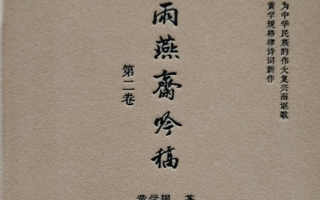 为中华民族的伟大复兴而讴歌
黄学规格律诗词新作
雨燕齋吟稿
第二卷
黄学规 著